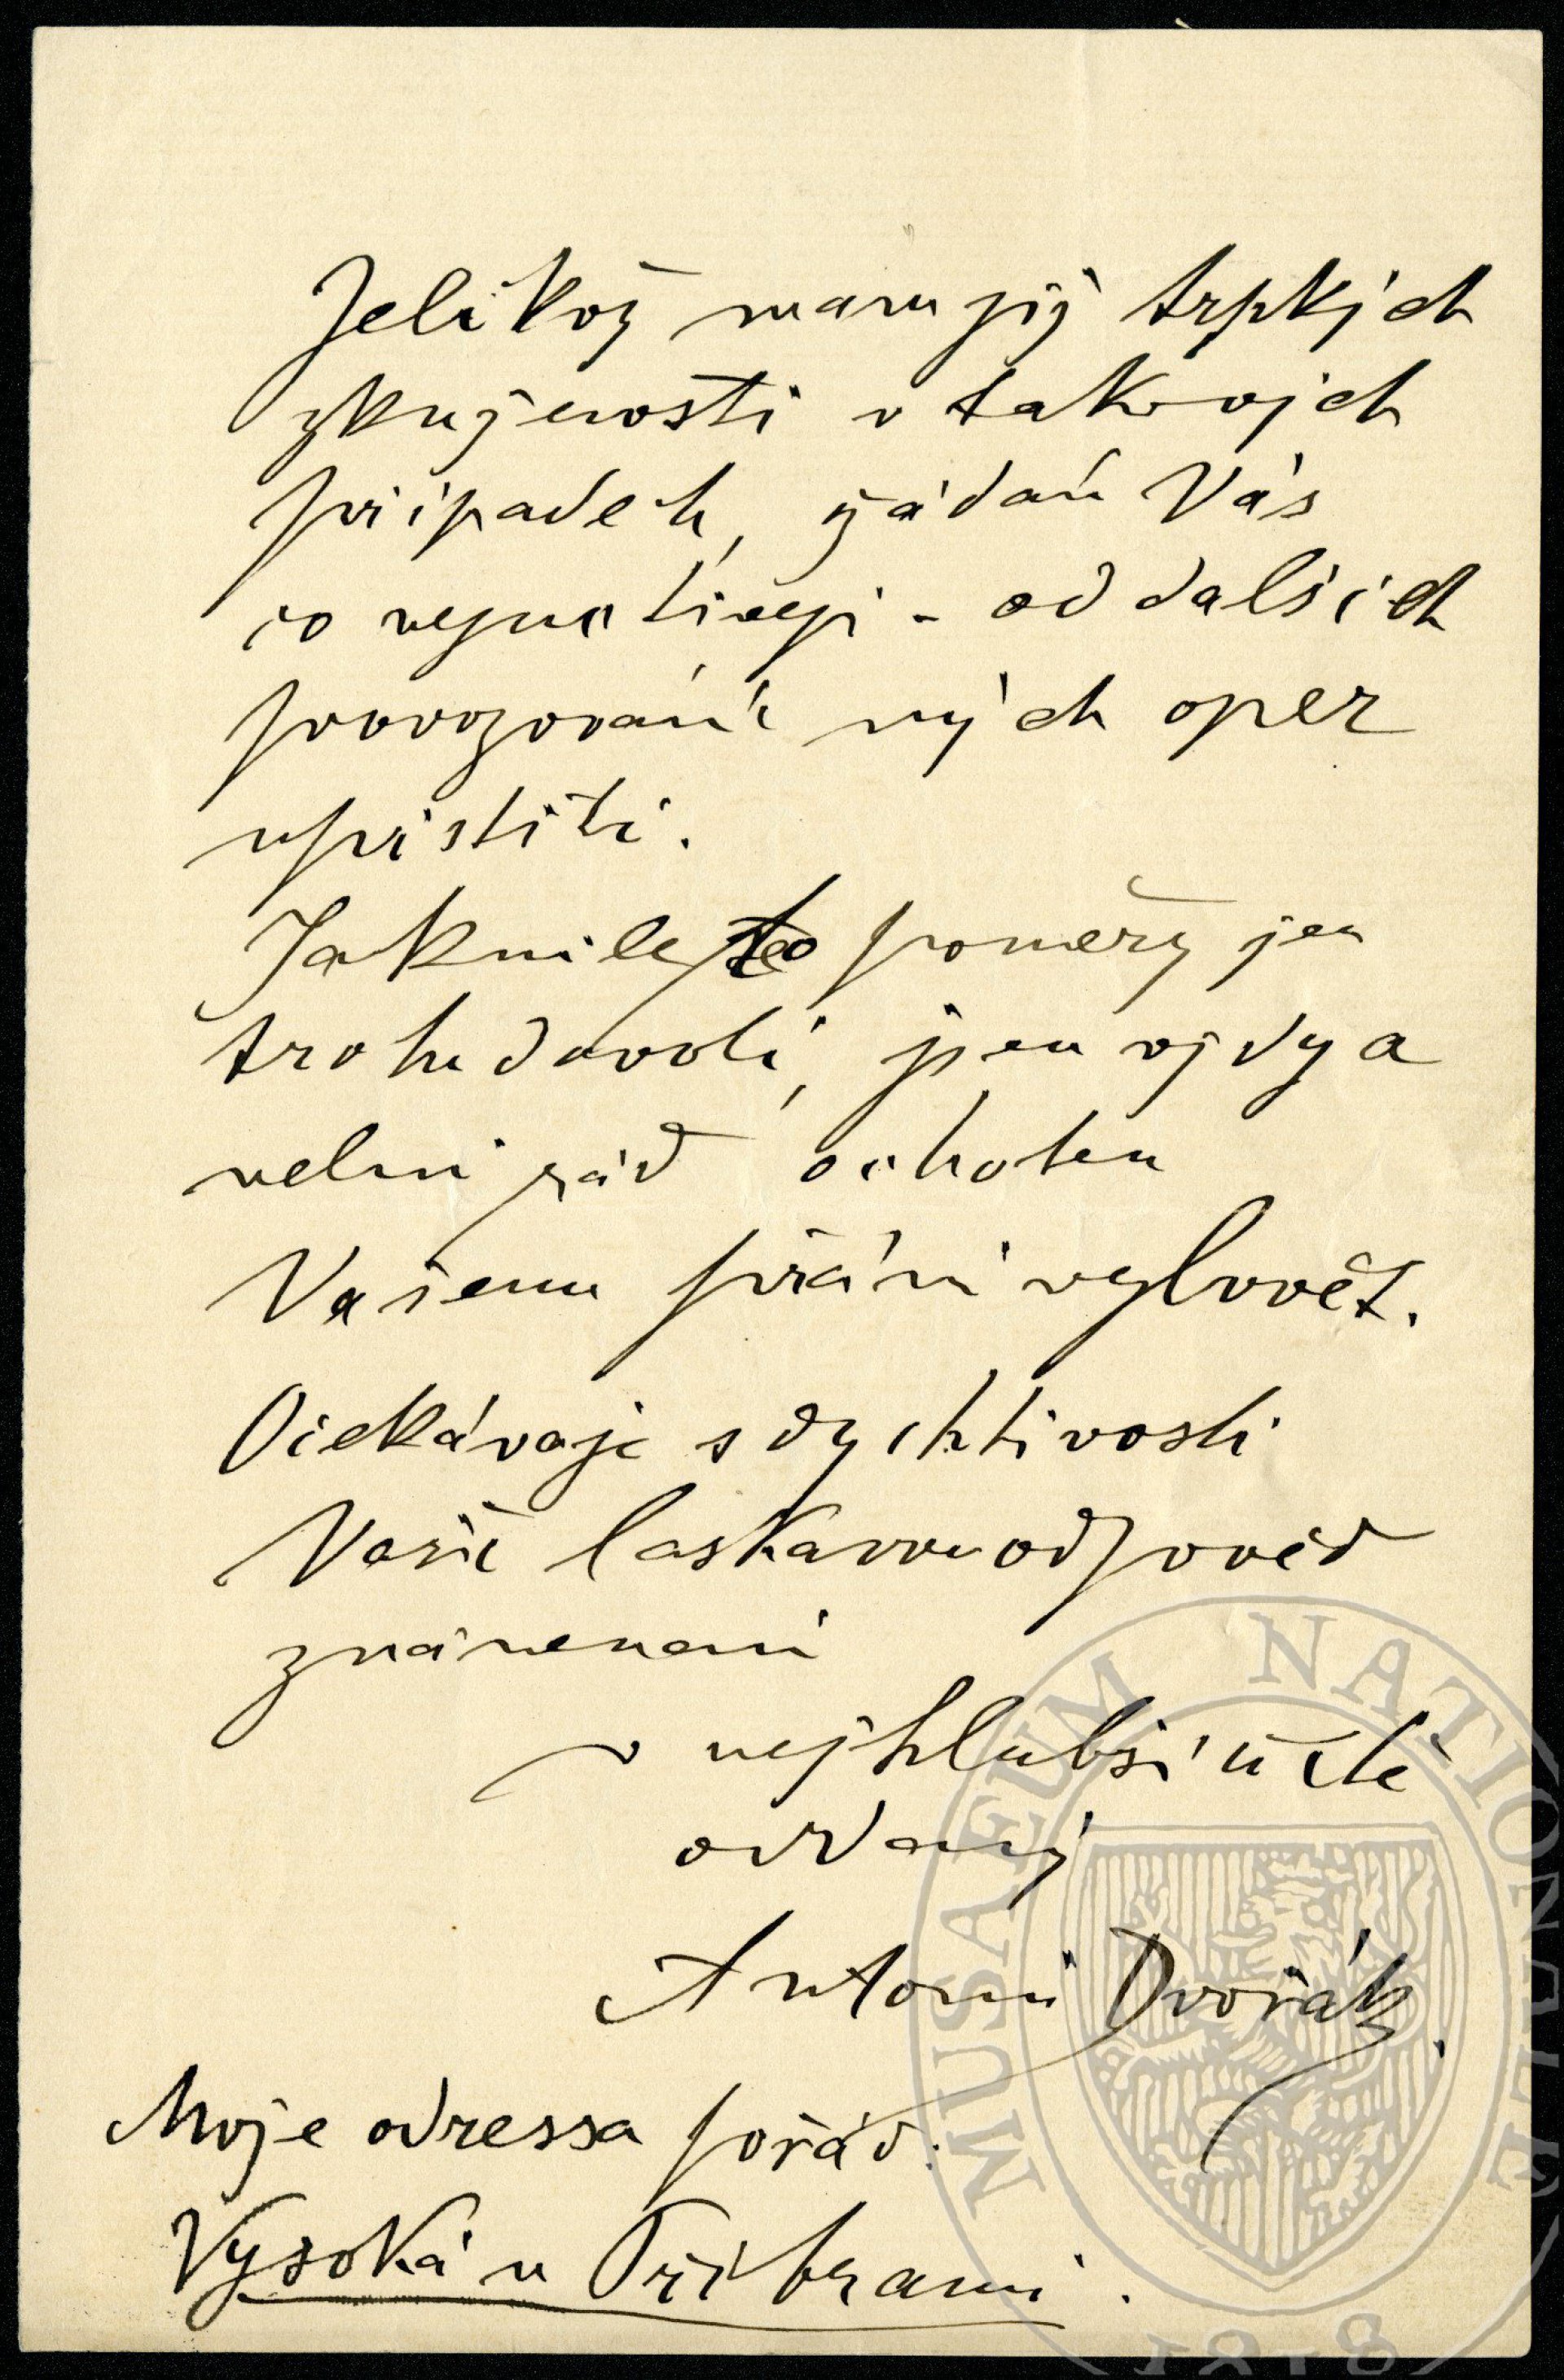 Jelikož mam již trpkých
zkušenosti v takových
připadech, žádám Vás
co nejuctivěji - od dalších
provozování mých oper
upustiti.
Jakmile to poměry jen
trohu dovolí, jsem vždy a
velmi rád ochoten
Vašemu přání vyhovět.
Očekávaje s dychtivosti
Vaši laskavou odpověd
znamenam
v nejhlubší úctě
oddaný
Antonín Dvořák.
Moje adressa pořád:
Vysoká u Příbrami.
MUSAEUM NATIONALE
1818